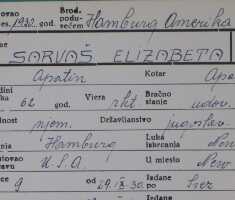 ovao 1932. god. Brod. podu- Hamburg Amerika
es. zećem
me SARVAŠ ELIZABETA
Apatin Kotar Apa
dini
ka 62 god. Viera rkt. Bračno stanje udov.
nost njem. Državljanstvo jugoslav.
nja Hamburg Luka iskrcanja New
utovao ravu U.S.A. U mjesto New
ce 9 od 29.IX.30. Izdane po Srez